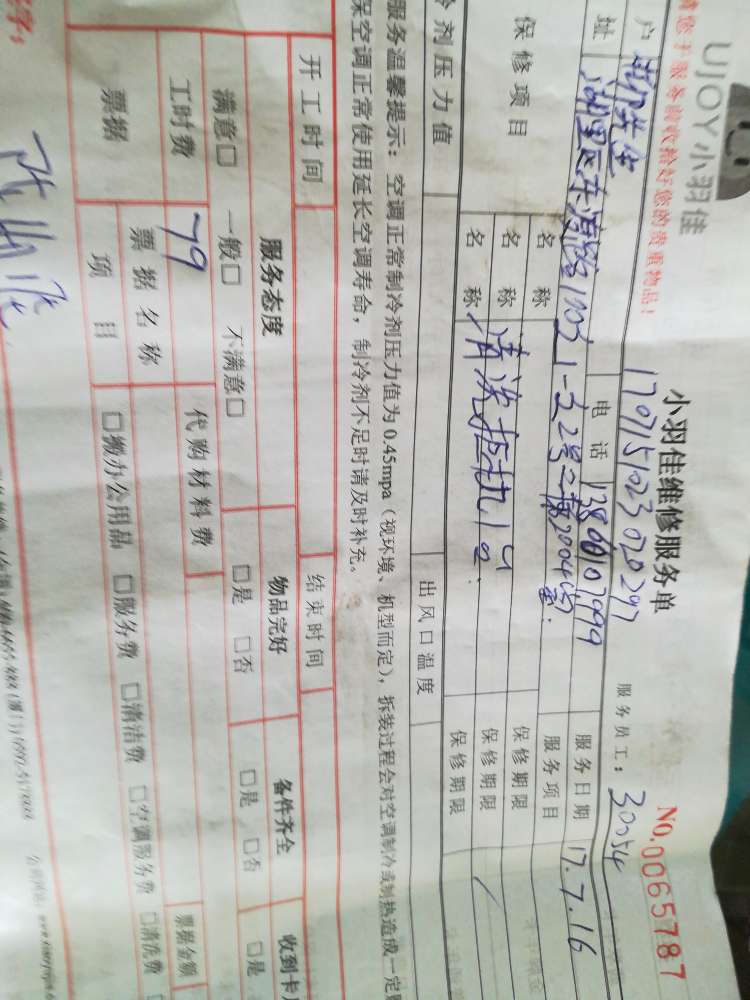 UJOY小羽佳
小羽佳维修服务单
No.0065787
请您于服务前收拾好您的贵重物品！
1707151023020297
服务员工：30054
户
先生
电话
13860107999
服务日期
17.7.16
址
湖里区
1-32号之
2004室
服务项目
保修项目
名称
保修期限
名称
清洗挂机1台.
保修期限
名称
保修期限
冷剂压力值
出风口温度
服务温馨提示：空调正常制冷剂压力值为0.45mpa（视环境、机型而定），拆装过程会对空调制冷或制热造成一定
保空调正常使用延长空调寿命，制冷剂不足时请及时补充。
开工时间
结束时间
服务态度
物品完好
备件齐全
收到卡
满意□ 一般□ 不满意□
□是 □否
□是 □否
□是
工时费
79
代购材料费
票据
票据名称
票据金额
项目
□搬办公用品 □服务费 □清洁费 □空调服务费 □清洗费